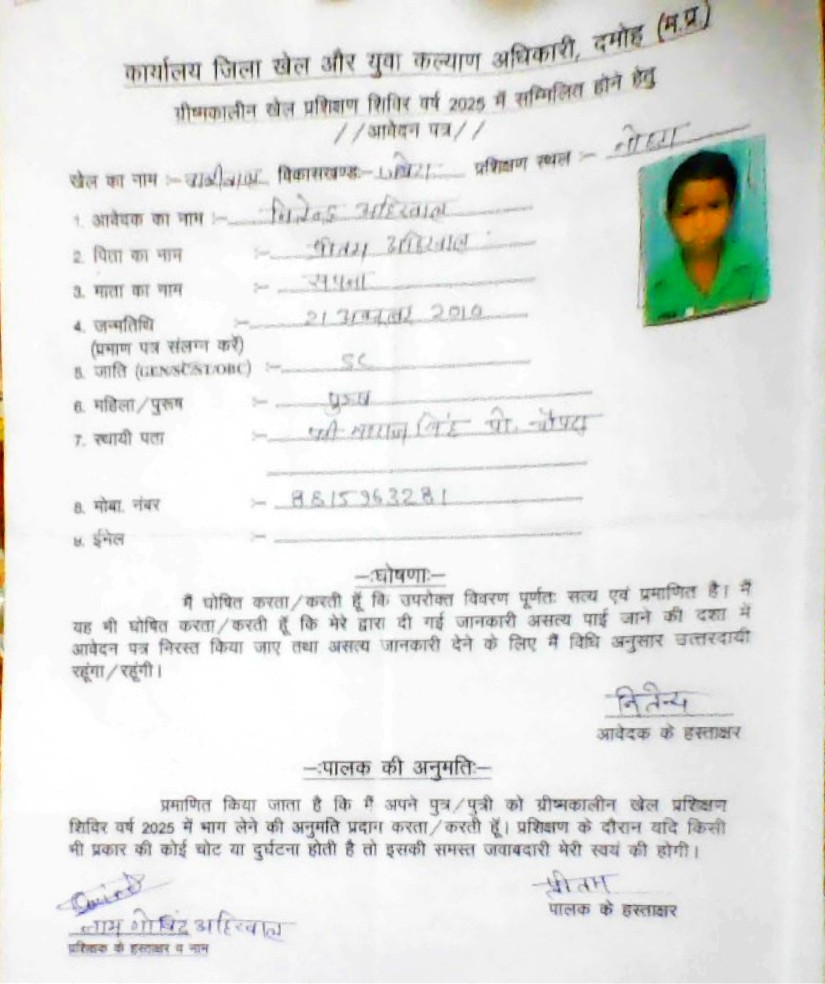 कार्यालय जिला खेल और युवा कल्याण अधिकारी, दमोह (म.प्र.)
ग्रीष्मकालीन खेल प्रशिक्षण शिविर वर्ष 2025 में सम्मिलित होने हेतु
//आवेदन पत्र//
खेल का नाम :- विकासखण्ड:- प्रशिक्षण स्थल :- नोहटा
1. आवेदक का नाम :- नितेन्द्र अहिरवाल
2. पिता का नाम :- प्रीतम अहिरवाल
3. माता का नाम :- सपना
4. जन्मतिथि :- 21 अक्टूबर 2010
(प्रमाण पत्र संलग्न करें)
5. जाति (GEN/SC/ST/OBC) :- SC
6. महिला/पुरूष :- पुरुष
7. स्थायी पता :- सिंह पो. चौपरा
8. मोबा. नंबर :- 8815963281
9. ईमेल :-
-:घोषणा:-
मैं घोषित करता/करती हूँ कि उपरोक्त विवरण पूर्णतः सत्य एवं प्रमाणित है। मैं
यह भी घोषित करता/करती हूँ कि मेरे द्वारा दी गई जानकारी असत्य पाई जाने की दशा में
आवेदन पत्र निरस्त किया जाए तथा असत्य जानकारी देने के लिए मैं विधि अनुसार उत्तरदायी
रहूंगा/रहूंगी।
नितेन्द्र
आवेदक के हस्ताक्षर
-:पालक की अनुमति:-
प्रमाणित किया जाता है कि मैं अपने पुत्र/पुत्री को ग्रीष्मकालीन खेल प्रशिक्षण
शिविर वर्ष 2025 में भाग लेने की अनुमति प्रदाग करता/करती हूँ। प्रशिक्षण के दौरान यदि किसी
भी प्रकार की कोई चोट या दुर्घटना होती है तो इसकी समस्त जवाबदारी मेरी स्वयं की होगी।
प्रीतम
पालक के हस्ताक्षर
नाम गोविंद अहिरवाल
प्रशिक्षक के हस्ताक्षर व नाम